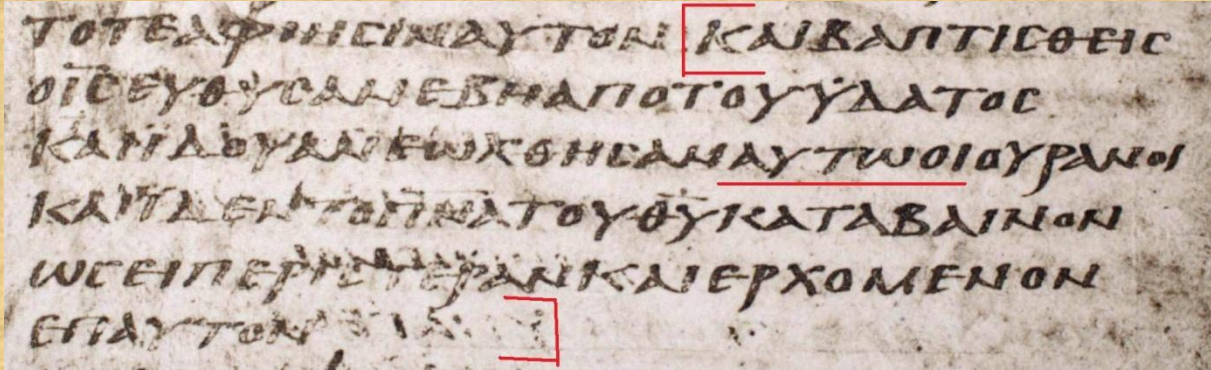 ΤΟΤΕΑΦΙΗϹΙΝΑΥΤΟΝ ΚΑΙΒΑΠΤΙϹΘΕΙϹ
ΟΙ̅Ϲ̅ΕΥΘΥϹΑΝΕΒΗΑΠΟΤΟΥΫΔΑΤΟϹ
ΚΑΙΙΔΟΥΑΝΕΩΧΘΗϹΑΝΑΥΤΩΟΙΟΥΡΑΝΟΙ
ΚΑΙΪΔΕΝΤΟΠ̅Ν̅Α̅ΤΟΥΘ̅Υ̅ΚΑΤΑΒΑΙΝΟΝ
ΩϹΕΙΠΕΡΙϹΤΕΡΑΝΚΑΙΕΡΧΟΜΕΝΟΝ
ΕΠΑΥΤΟΝ